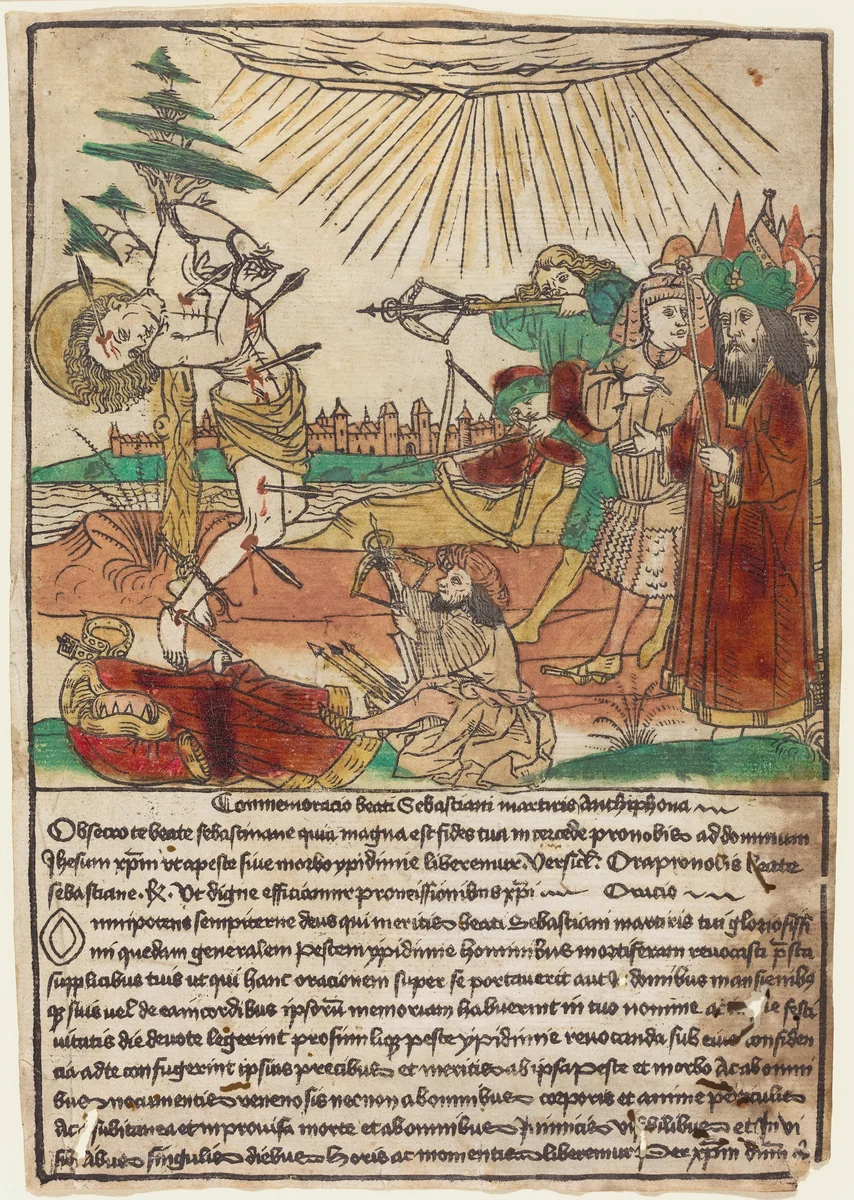 Commemoracio beati Sebastiani martiris Anthiphona
Obsecro te beate sebastinane quia magna est fides tua intercede pro nobis ad dominum
Jhesum xp̄m vt a peste siue morbo ypidimie liberemur. Versicl: Ora pro nobis beate
sebastiane. R. Ut digne efficiamur promissionibus xp̄i Oracio
Omnipotens sempiterne deus qui meritis beati Sebastiani martiris tui gloriosissi
mi quedam generalem Pestem ypidimie hominibus mortiferam reuocasti p̄sta
supplicibus tuis ut qui hanc orationem super se portauerit aut in domibus mansionibꝫ
qꝫ suis uel de ea in cordibus ipsorū memoriam habuerint in tuo nomine ac die festi
uitatis die deuote legerint peste ypidimie reuocanda sub eius confiden
cia ad te confugerint ipsius precibus et meritis ab ipsa Peste et morbo Ac ab omni
bus nocumentis venenosis necnon ab omnibus corporis et anime periculis
Ac subitanea et improuisa morte et ab omnibus Inimicis visibilibus et In vi
sibilibus singulis diebus horis ac momentis liberemur Per xp̄m dn̄m